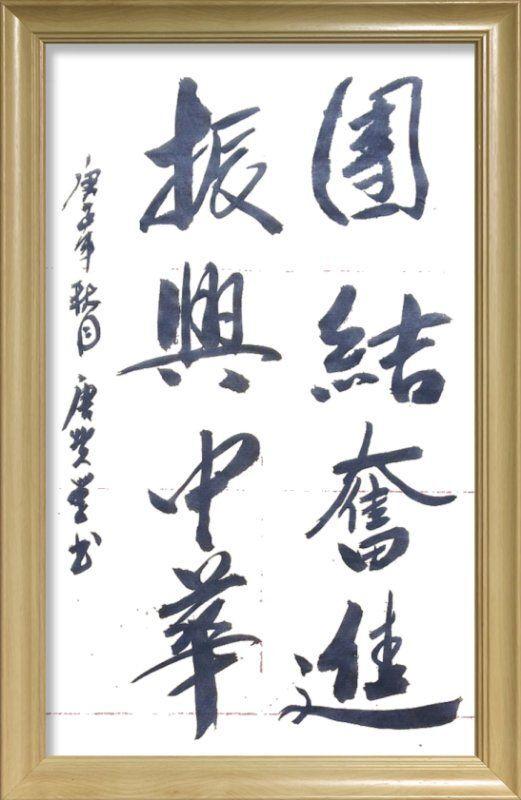 團結奮進
振興中華
庚子年秋月 唐
書